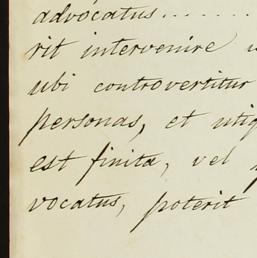 advocatus.......
rit intervenire
ubi controvertitur
personas, et
est finita, vel
vocatus, poterit